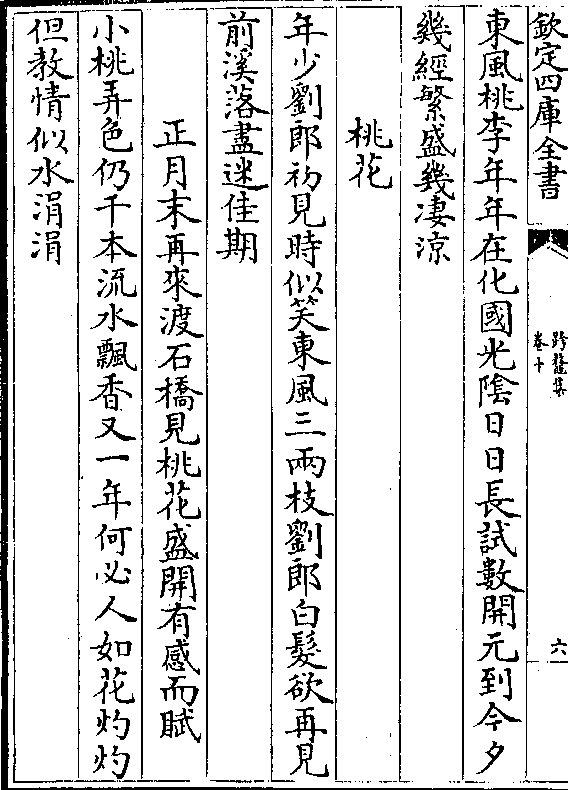 欽定四庫全書
跨鼇集
卷十
六
東風桃李年年在化國光陰日日長試數開元到今夕
幾經繁盛幾凄涼
桃花
年少劉郎初見時似笑東風三兩枝劉郎白髮欲再見
前溪落盡迷佳期
正月末再來渡石橋見桃花盛開有感而賦
小桃弄色仍千本流水飄香又一年何必人如花灼灼
但教情似水涓涓